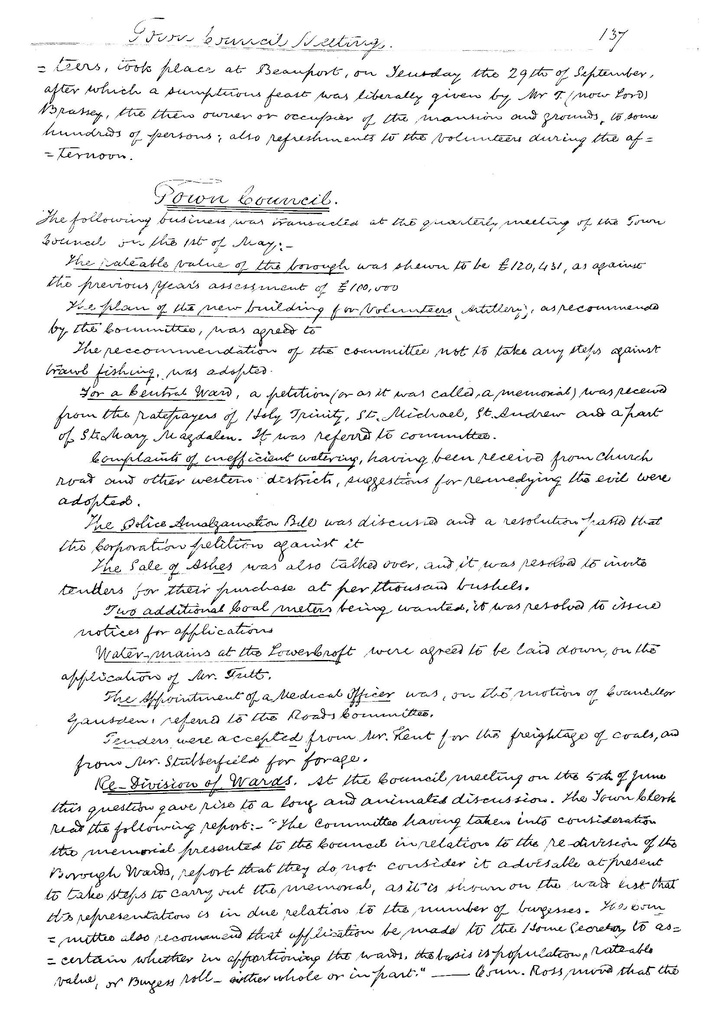 Town Council Meeting. 137
=teers, took place at Beauport, on Tuesday the 29th of September,
after which a sumptuous feast was liberally given by Mr T. (now Lord)
Brassey, the then owner or occupier of the mansion and grounds, to some
hundreds of persons; also refreshments to the volunteers during the af=
=ternoon.
Town Council.
The following business was transacted at the quarterly meeting of the Town
Council on the 1st of May:-
The rateable value of the borough was shewn to be £120,431, as against
the previous year's assessment of £100,000
The plan of the new building for Volunteers (Artillery), as recommended
by the Committee, was agreed to
The reccommendation of the committee not to take any steps against
trawl fishing, was adopted.
For a Central Ward, a petition (or as it was called, a memorial) was received
from the ratepayers of Holy Trinity, St. Michael, St. Andrew and a part
of St. Mary Magdalen. It was referred to committee.
Complaints of inefficient watering, having been received from church
road and other western districts, suggestions for remedying the evil were
adopted.
The Police Amalgamation Bill was discussed and a resolution passed that
the Corporation petition against it
The Sale of Ashes was also talked over, and it was resolved to invite
tenders for their purchase at per thousand bushels.
Two additional Coal meters being wanted, it was resolved to issue
notices for applications
Water-mains at the Lower Croft were agreed to be laid down, on the
application of Mr. Tutt.
The Appointment of a Medical Officer was, on the motion of Councillor
Gausden, referred to the Roads Committee.
Tenders were accepted from Mr. Kent for the freightage of coals, and
from Mr. Stubberfield for forage.
Re-Division of Wards. At the Council meeting on the 5th of June
this question gave rise to a long and animated discussion. The Town Clerk
read the following report:- "The Committee having taken into consideration
the memorial presented to the Council in relation to the re-division of the
Borough Wards, report that they do not consider it advisable at present
to take steps to carry out the memorial, as it is shown on the ward list that
the representation is in due relation to the number of burgesses. The com
=mittee also recomend that application be made to the Home Secretary to as=
=certain whether in apportioning the wards, the basis is population, rateable
value, or Burgess roll - either whole or in part." —— Coun. Ross movd that the